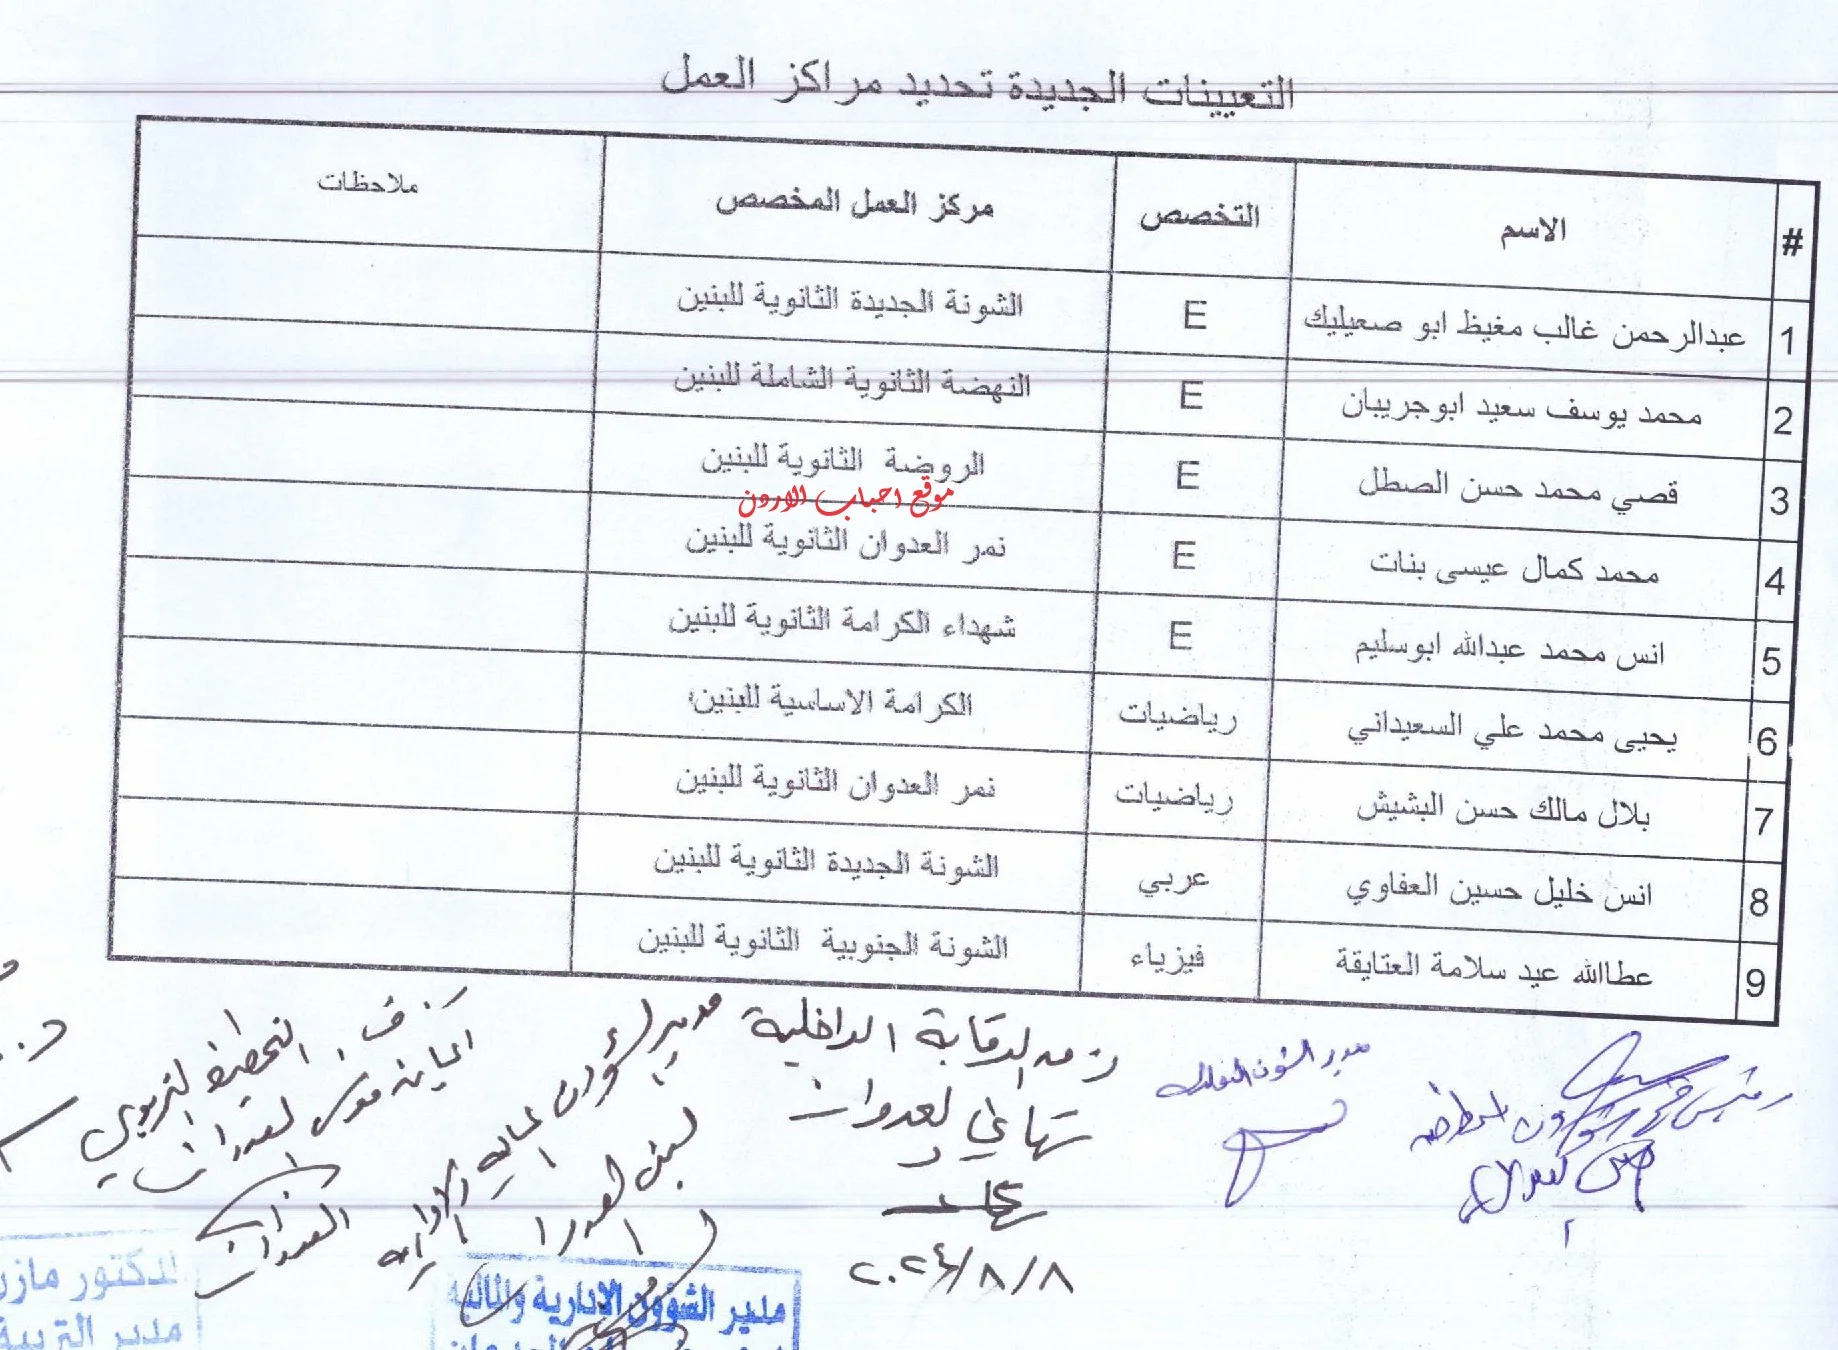 التعيينات الجديدة تحديد مراكز العمل
# الاسم التخصص مركز العمل المخصص ملاحظات
1 عبدالرحمن غالب مغيظ ابو صعيليك E الشونة الجديدة الثانوية للبنين
2 محمد يوسف سعيد ابوجريبان E النهضة الثانوية الشاملة للبنين
3 قصي محمد حسن الصطل E الروضة الثانوية للبنين
موقع احباب الاردن
4 محمد كمال عيسى بنات E نمر العدوان الثانوية للبنين
5 انس محمد عبدالله ابوسليم E شهداء الكرامة الثانوية للبنين
6 يحيى محمد علي السعيداني رياضيات الكرامة الاساسية للبنين
7 بلال مالك حسن البشيش رياضيات نمر العدوان الثانوية للبنين
8 انس خليل حسين العفاوي عربي الشونة الجديدة الثانوية للبنين
9 عطاالله عيد سلامة العتايقة فيزياء الشونة الجنوبية الثانوية للبنين
مدير الشؤون التعليمية
الرقابة الداخلية
تهاني العدوان
٢٠٢٤/٨/٨
لبنى العدوان
التخطيط التربوي
مدير الشؤون الادارية والمالية
الدكتور مازن
مدير التربية